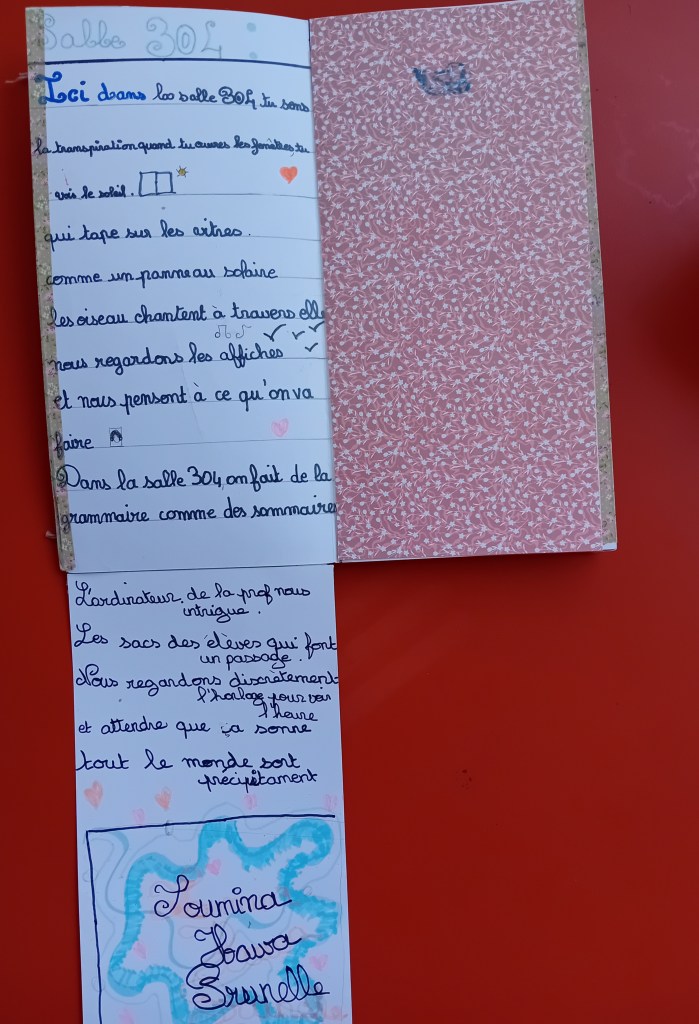 Salle 304 :
Ici dans la salle 304, tu sens
la transpiration quand tu ouvres les fenêtres tu
vois le soleil.
qui tape sur les vitres.
comme un panneau solaire
les oiseau chantent à travers elle
nous regardons les affiches
et nous pensent à ce qu'on va
faire
Dans la salle 304, on fait de la
grammaire comme des sommaires
L'ordinateur de la prof nous
intrigue.
Les sacs des élèves qui font
un passage.
Nous regardons discrètement
l'horloge pour voir
l'heure
et attendre que ça sonne
tout le monde sort
précipitament
Soumina
Hawa
Brunelle